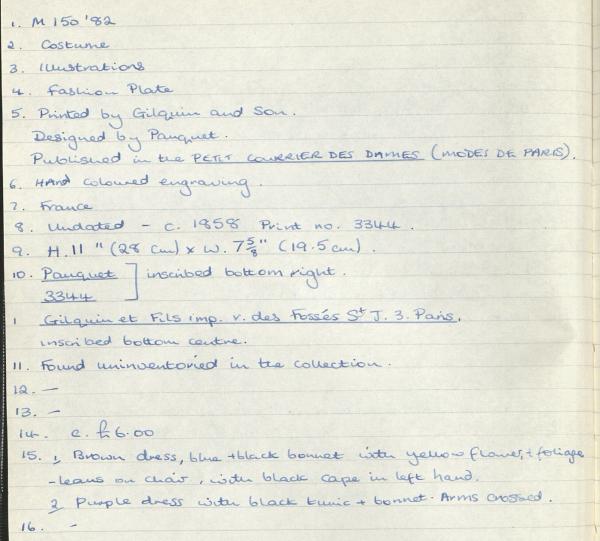 1. M 150 '82
2. Costume
3. Illustrations
4. Fashion Plate
5. Printed by Gilquin and Son.
Designed by Pauquet.
Published in the PETIT COURRIER DES DAMES (MODES DE PARIS).
6. Hand coloured engraving.
7. France
8. Undated - c. 1858 Print no. 3344.
9. H. 11" (28 cm) x W. 7 5/8" (19.5 cm).
10. Pauquet ] inscribed bottom right.
3344
1 Gilquin et Fils imp. r. des Fossés St J. 3. Paris.
inscribed bottom centre.
11. Found uninventoried in the collection.
12. —
13. —
14. c. £6.00
15. 1, Brown dress, blue + black bonnet with yellow flower, + foliage
- leans on chair, with black cape in left hand.
2 Purple dress with black tunic + bonnet. Arms crossed.
16. -